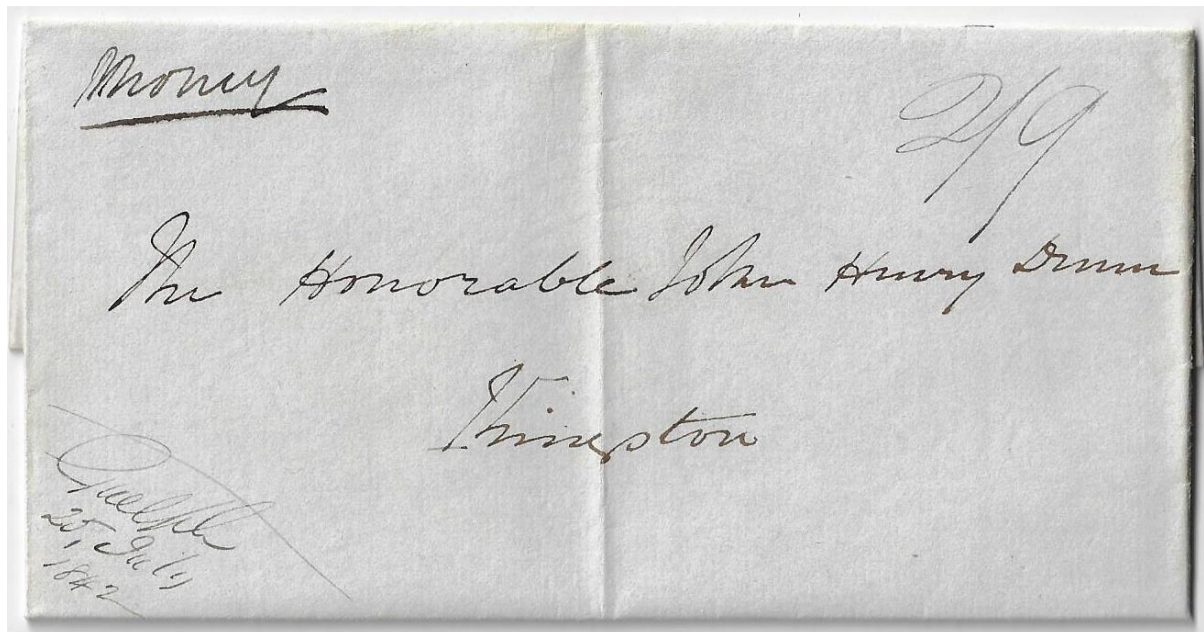 Money
2/9
The Honorable John Henry Dunn
Kingston
Guelph
25 July
1842